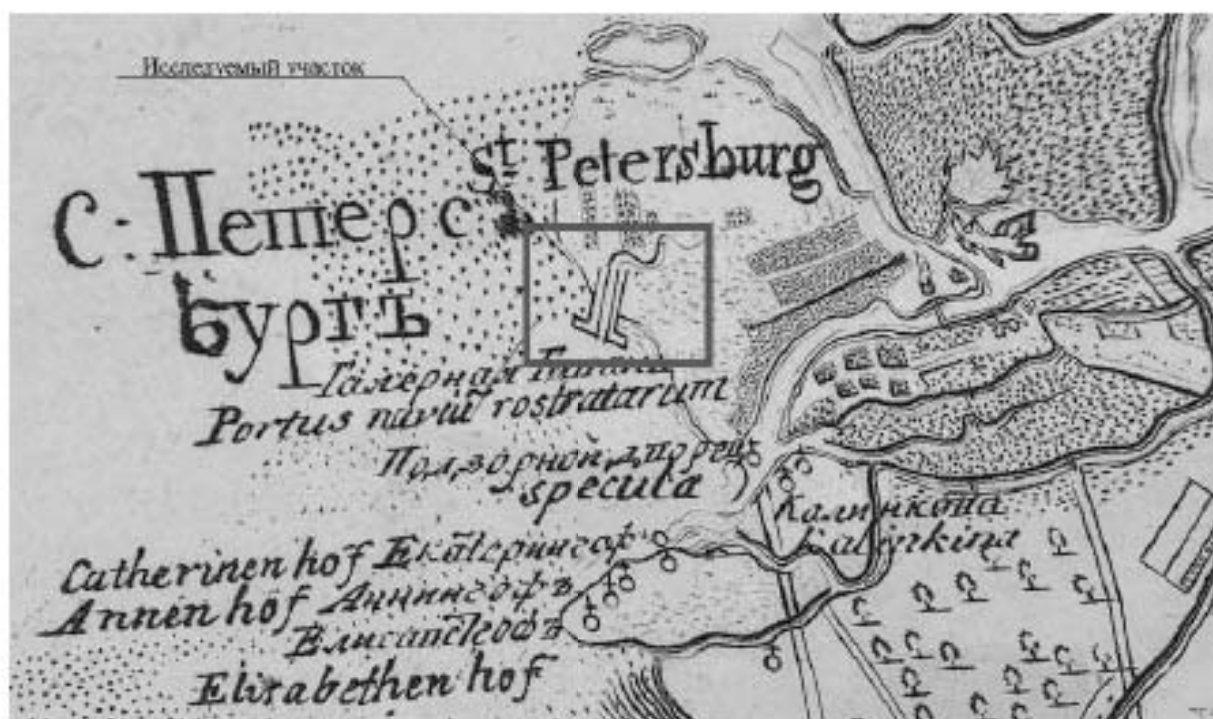 Исследуемый участок
St Petersburg
С. Петерс
бургъ
Галерная Гавань
Portus navium rostratarum
Подзорной дворец
specula
Калинкона
Kalinkina
Catherinen hof Екатерингоф
Annen hof Аннингофъ
Елисаветгофъ
Elisabethen hof